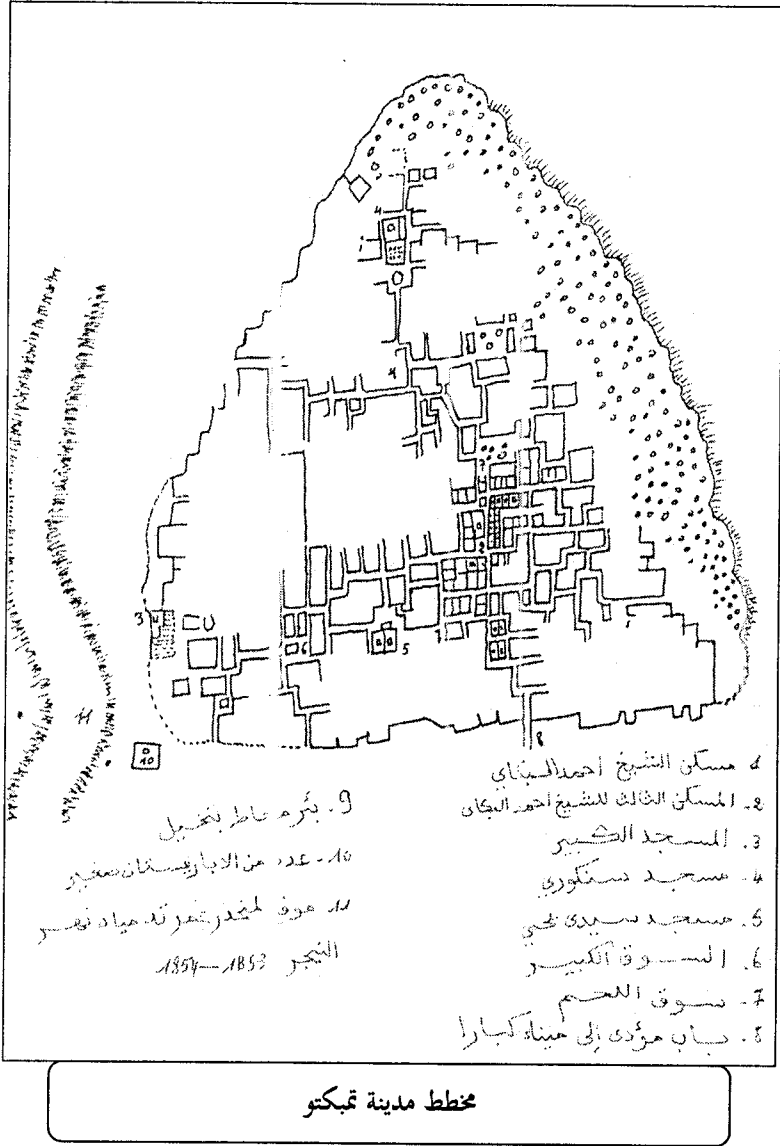 1 مسكن الشيخ أحمد البكاي
2. المسكن الثالث للشيخ أحمد البكاي
3. المسجد الكبير
4. مسجد سنكوري
5. مسجد سيدي يحيى
6. السوق الكبير
7. سوق اللحم
8. باب مؤدى إلى ميناء كبارا
9. بئر محاط بنخيل
10. عدد من الابار وبستان صغير
11 لمنحدر مياه نهر
النيجر 1853–1854
مخطط مدينة تمبكتو